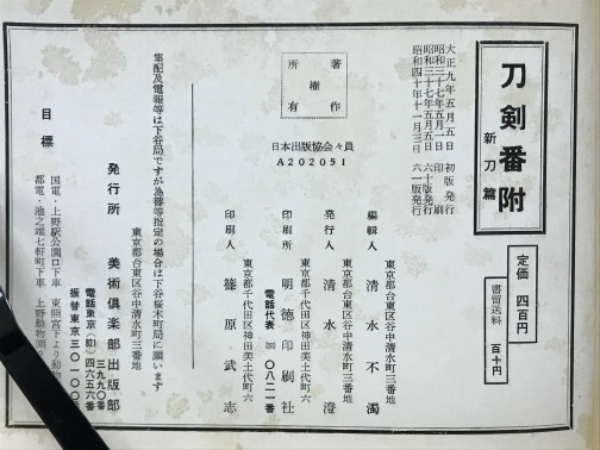 刀剣番附
新刀篇
定価 四百円
書留送料 百十円
大正九年五月五日 初版発行
昭和三十七年五月一日 印刷
昭和三十七年五月五日 六十版発行
昭和四十年十一月三日 六一版発行
著作権所有
日本出版協会々員
A202051
東京都台東区谷中清水町三番地
編輯人 清水不濁
東京都台東区谷中清水町三番地
発行人 清水澄
東京都千代田区神田美土代町六
印刷所 明徳印刷社
電話代表 〇八二一番
東京都千代田区神田美土代町六
印刷人 篠原武志
集配及電報等は下谷局ですが為替等指定の場合は下谷桜木町局に願います
東京都台東区谷中清水町三番地
発行所 美術倶楽部出版部
三九九〇番
電話東京(821)四六五六番
振替東京三〇一〇〇
目標
国電・上野駅公園口下車 東照宮下より動物
都電・池之端七軒町下車 上野動物園